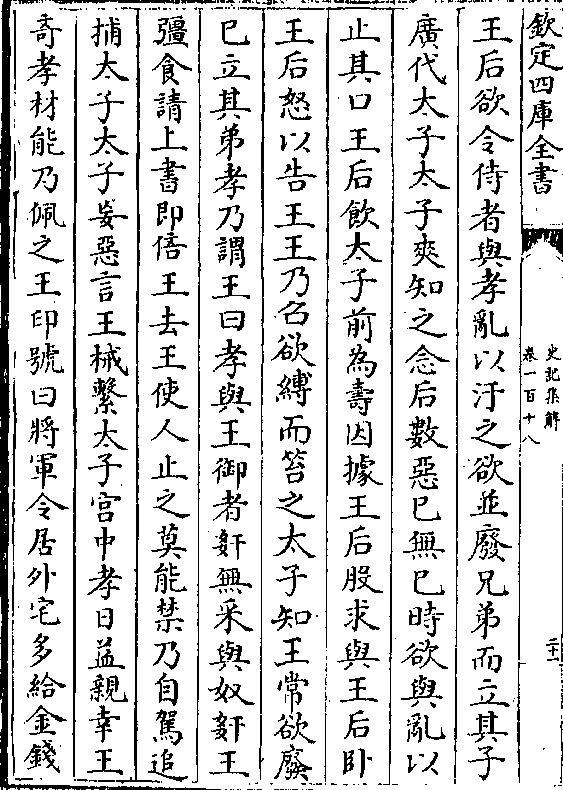 欽定四庫全書
史記集解
卷一百十八
二十一
王后欲令侍者與孝亂以汙之欲並廢兄弟而立其子
廣代太子太子爽知之念后數惡已無已時欲與亂以
止其口王后飲太子前為壽因據王后股求與王后卧
王后怒以告王王乃召欲縛而笞之太子知王常欲廢
已立其弟孝乃謂王曰孝與王御者姧無采與奴姧王
彊食請上書即偝王去王使人止之莫能禁乃自駕追
捕太子太子妄惡言王械繫太子宫中孝日益親幸王
竒孝材能乃佩之王印號曰將軍令居外宅多給金錢